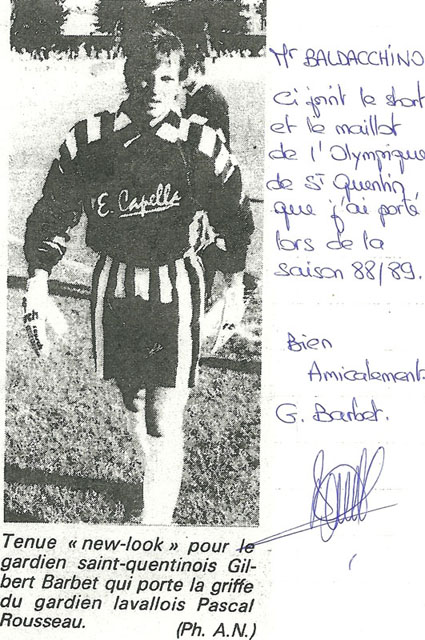 Mr BALDACCHINO
Ci joint le short
et le maillot
de l'Olympique
de St Quentin
que j'ai porté
lors de la
saison 88/89.
Bien
Amicalement.
G. Barbet.
E. Capella
Tenue « new-look » pour le
gardien saint-quentinois Gil-
bert Barbet qui porte la griffe
du gardien lavallois Pascal
Rousseau.
(Ph. A.N.)